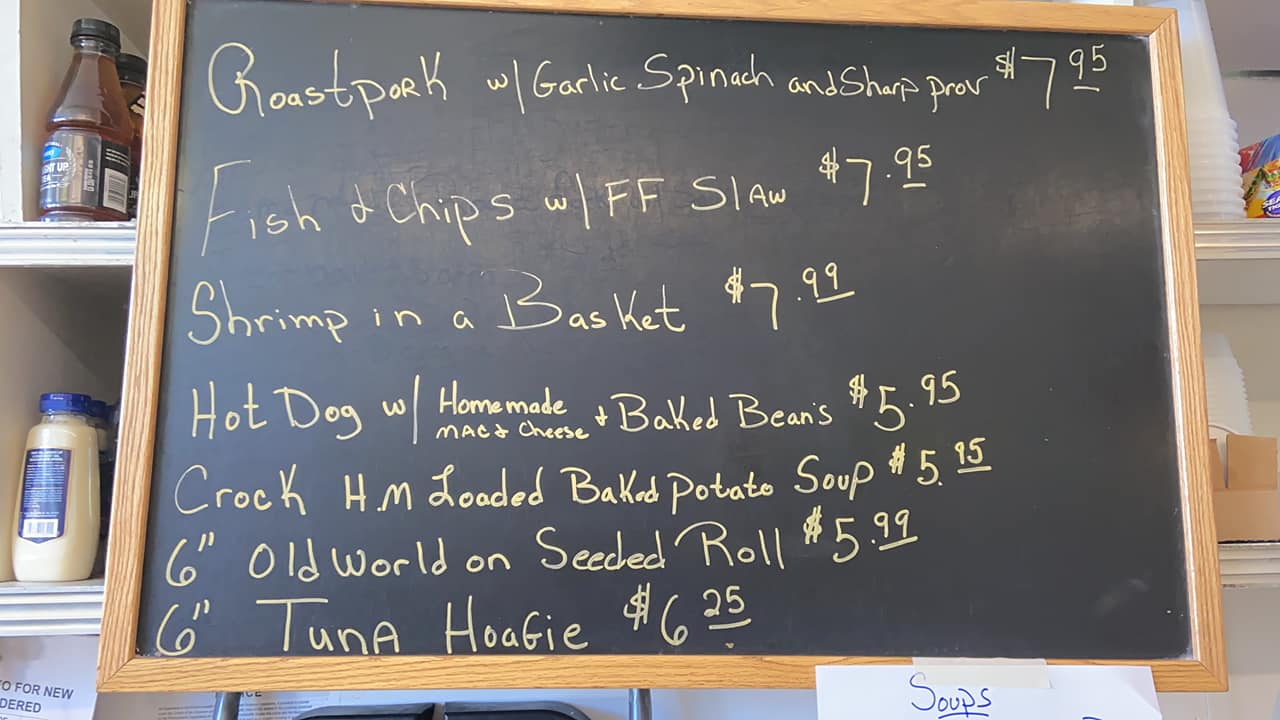 Roastpork w/ Garlic Spinach and Sharp prov $7.95
Fish & Chips w/ FF Slaw $7.95
Shrimp in a Basket $7.99
Hot Dog w/ Homemade Mac & Cheese & Baked Bean's $5.95
Crock H.M Loaded Baked Potato Soup $5.95
6" Old World on Seeded Roll $5.99
6" Tuna Hoagie $6 25
Soups
O FOR NEW
DERED